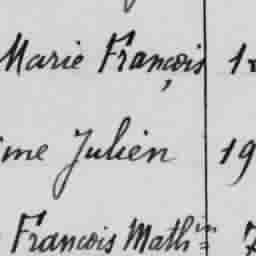 Marie François
Julien 19
François Mathin